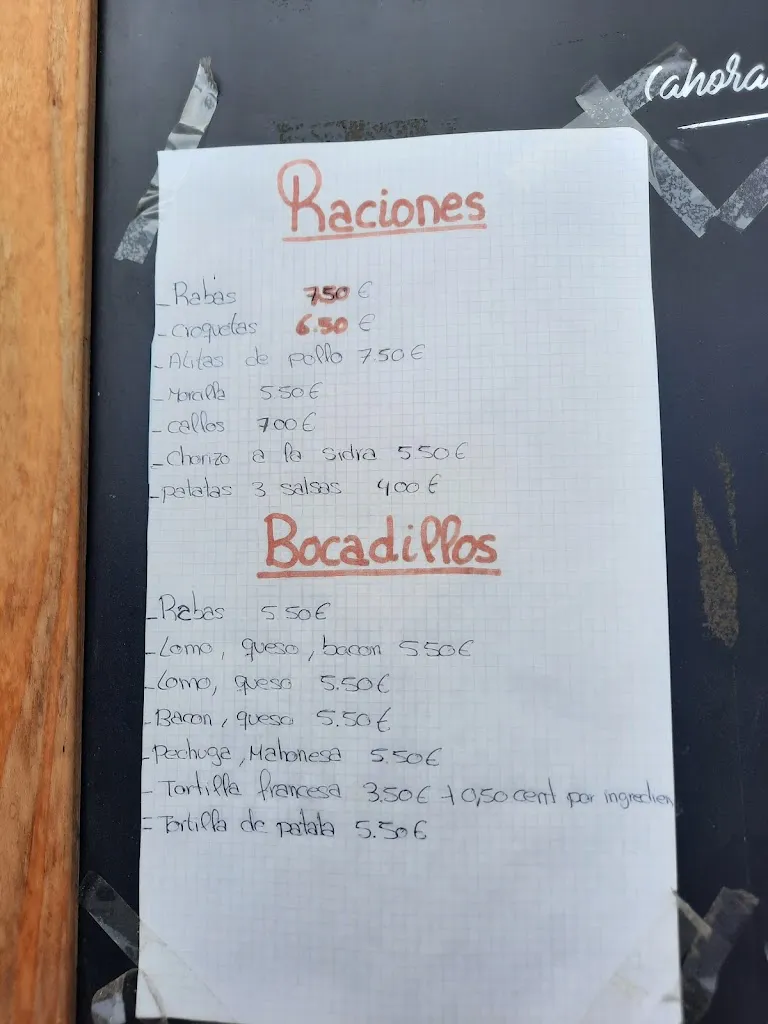 (ahora
Raciones
- Rabas 7.50 €
- croquetas 6.50 €
- Alitas de pollo 7.50 €
- Morcilla 5.50 €
- callos 7.00 €
- Chorizo a la sidra 5.50 €
- patatas 3 salsas 4.00 €
Bocadillos
- Rabas 5.50 €
- Lomo, queso, bacon 5.50 €
- Lomo, queso 5.50 €
- Bacon, queso 5.50 €
- Pechuga, Mahonesa 5.50 €
- Tortilla francesa 3.50 € + 0,50 cent por ingredien
= Tortilla de patata 5.50 €